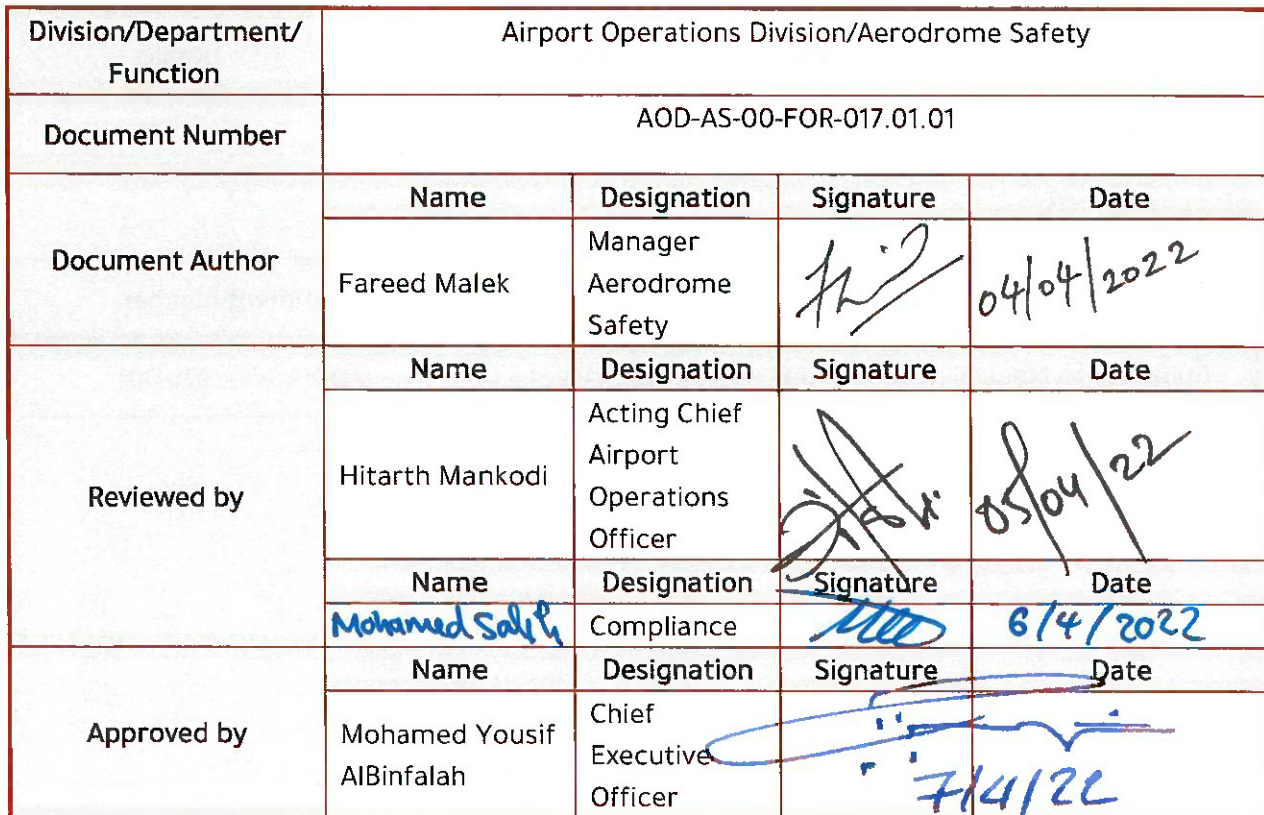 Division/Department/
Function
Airport Operations Division/Aerodrome Safety
Document Number
AOD-AS-00-FOR-017.01.01
Document Author
Name Designation Signature Date
Fareed Malek
Manager
Aerodrome
Safety
04/04/2022
Reviewed by
Name Designation Signature Date
Hitarth Mankodi
Acting Chief
Airport
Operations
Officer
05/04/22
Name Designation Signature Date
Mohamed Salih Compliance 6/4/2022
Approved by
Name Designation Signature Date
Mohamed Yousif
AlBinfalah
Chief
Executive
Officer
7/4/22